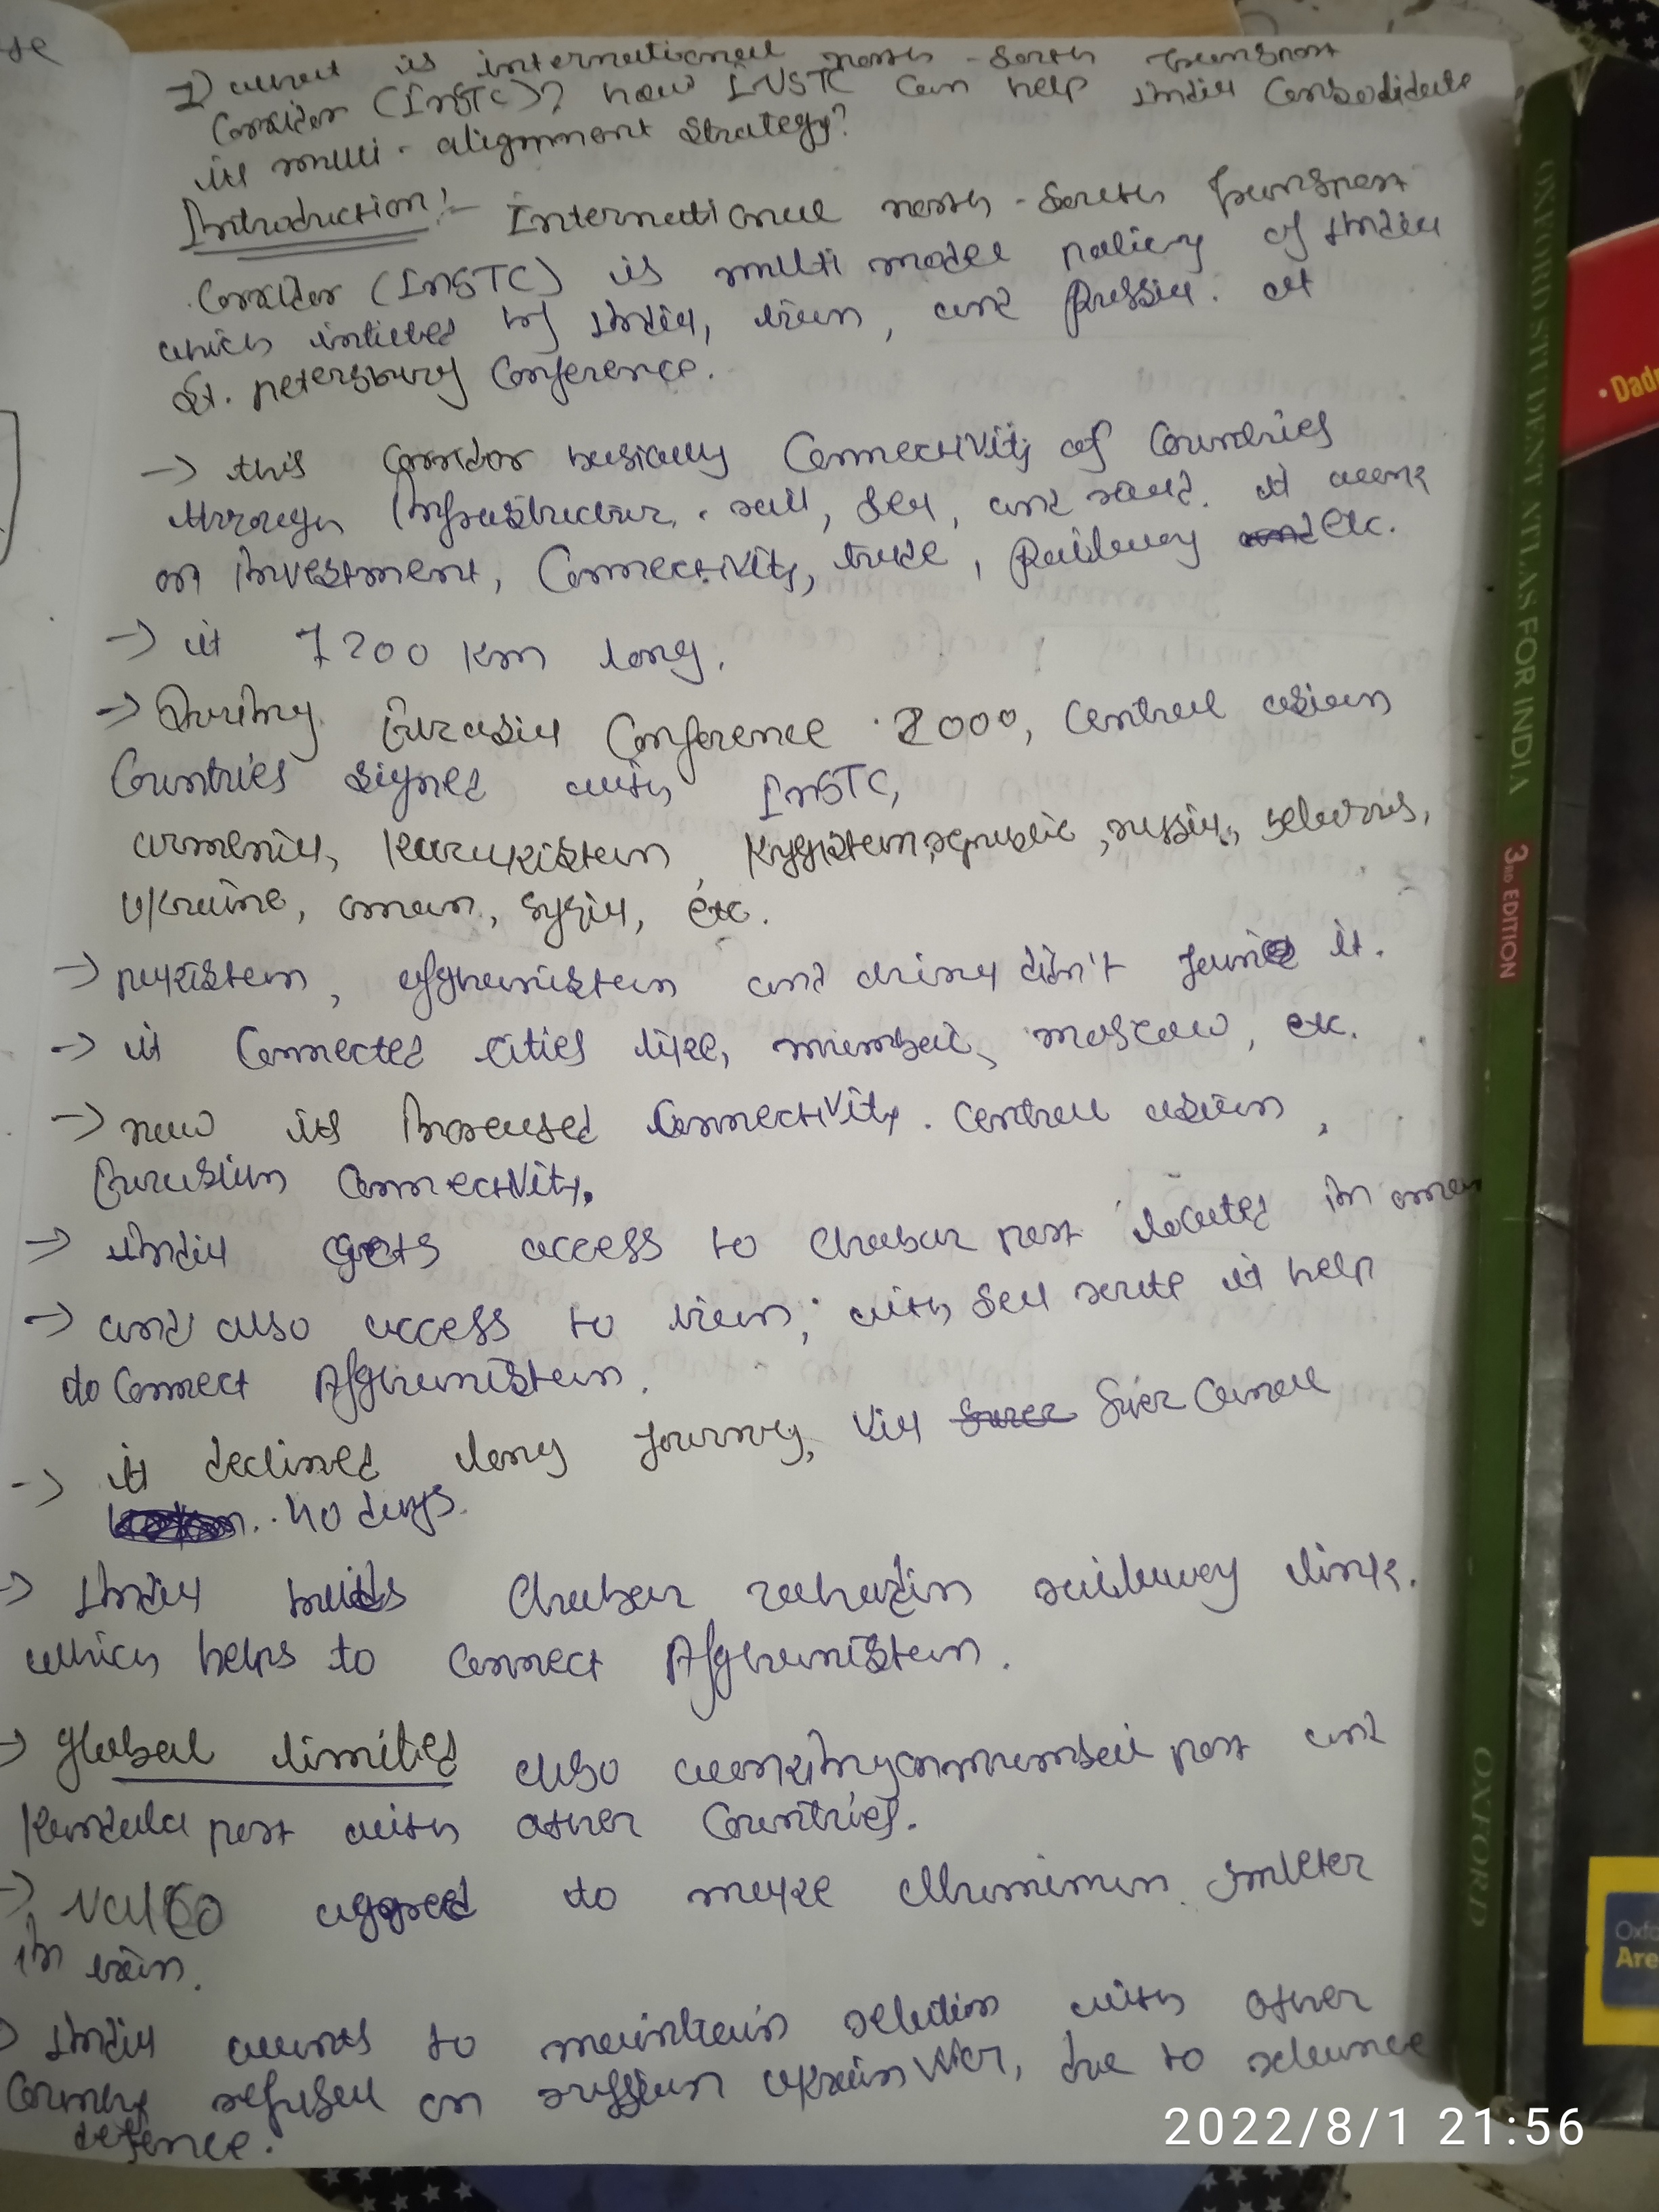 1) what is international north - South transport
Corridor (INSTC)? how INSTC can help India Consolidate
its multi-alignment strategy?
Introduction:- International north - South transport
Corridor (INSTC) is multi model policy of India
which intieted by India, iran, and Russia. at
St. petersburg Conference.
→ this corridor basically Connectivity of Countries
through Infrastructure, rail, sea, and road. it work
on Investment, Connectivity, trade, Railway etc.
→ it 7200 Km long.
→ During Eurasia Conference 2000, Central asian
Countries signed with INSTC,
armenia, Kazakistan, Kygistan republic, russia, belarus,
Ukraine, oman, syria, etc.
→ pakistan, afghanistan and china didn't joined it.
→ it Connected cities like, mumbai, moscow, etc.
→ now its Increased Connectivity. Central asian,
Eurasian Connectivity.
→ India gets access to Chabar port located in oman
→ and also access to iran, with sea route it help
to Connect Afghanistan.
→ it declined long journey, via Suez Canal
40 days.
→ India builds Chabar zahadan railway link.
which helps to connect Afghanistan.
→ global limited also working on mumbai port and
Kandala port with other Countries.
→ Nalco agreed to make Alluminium smilter
in iran.
India wants to maintain relation with other
Country refusal on russian ukrain War, due to
defence.
2022/8/1 21:56
OXFORD STUDENT ATLAS FOR INDIA
3RD EDITION
OXFORD